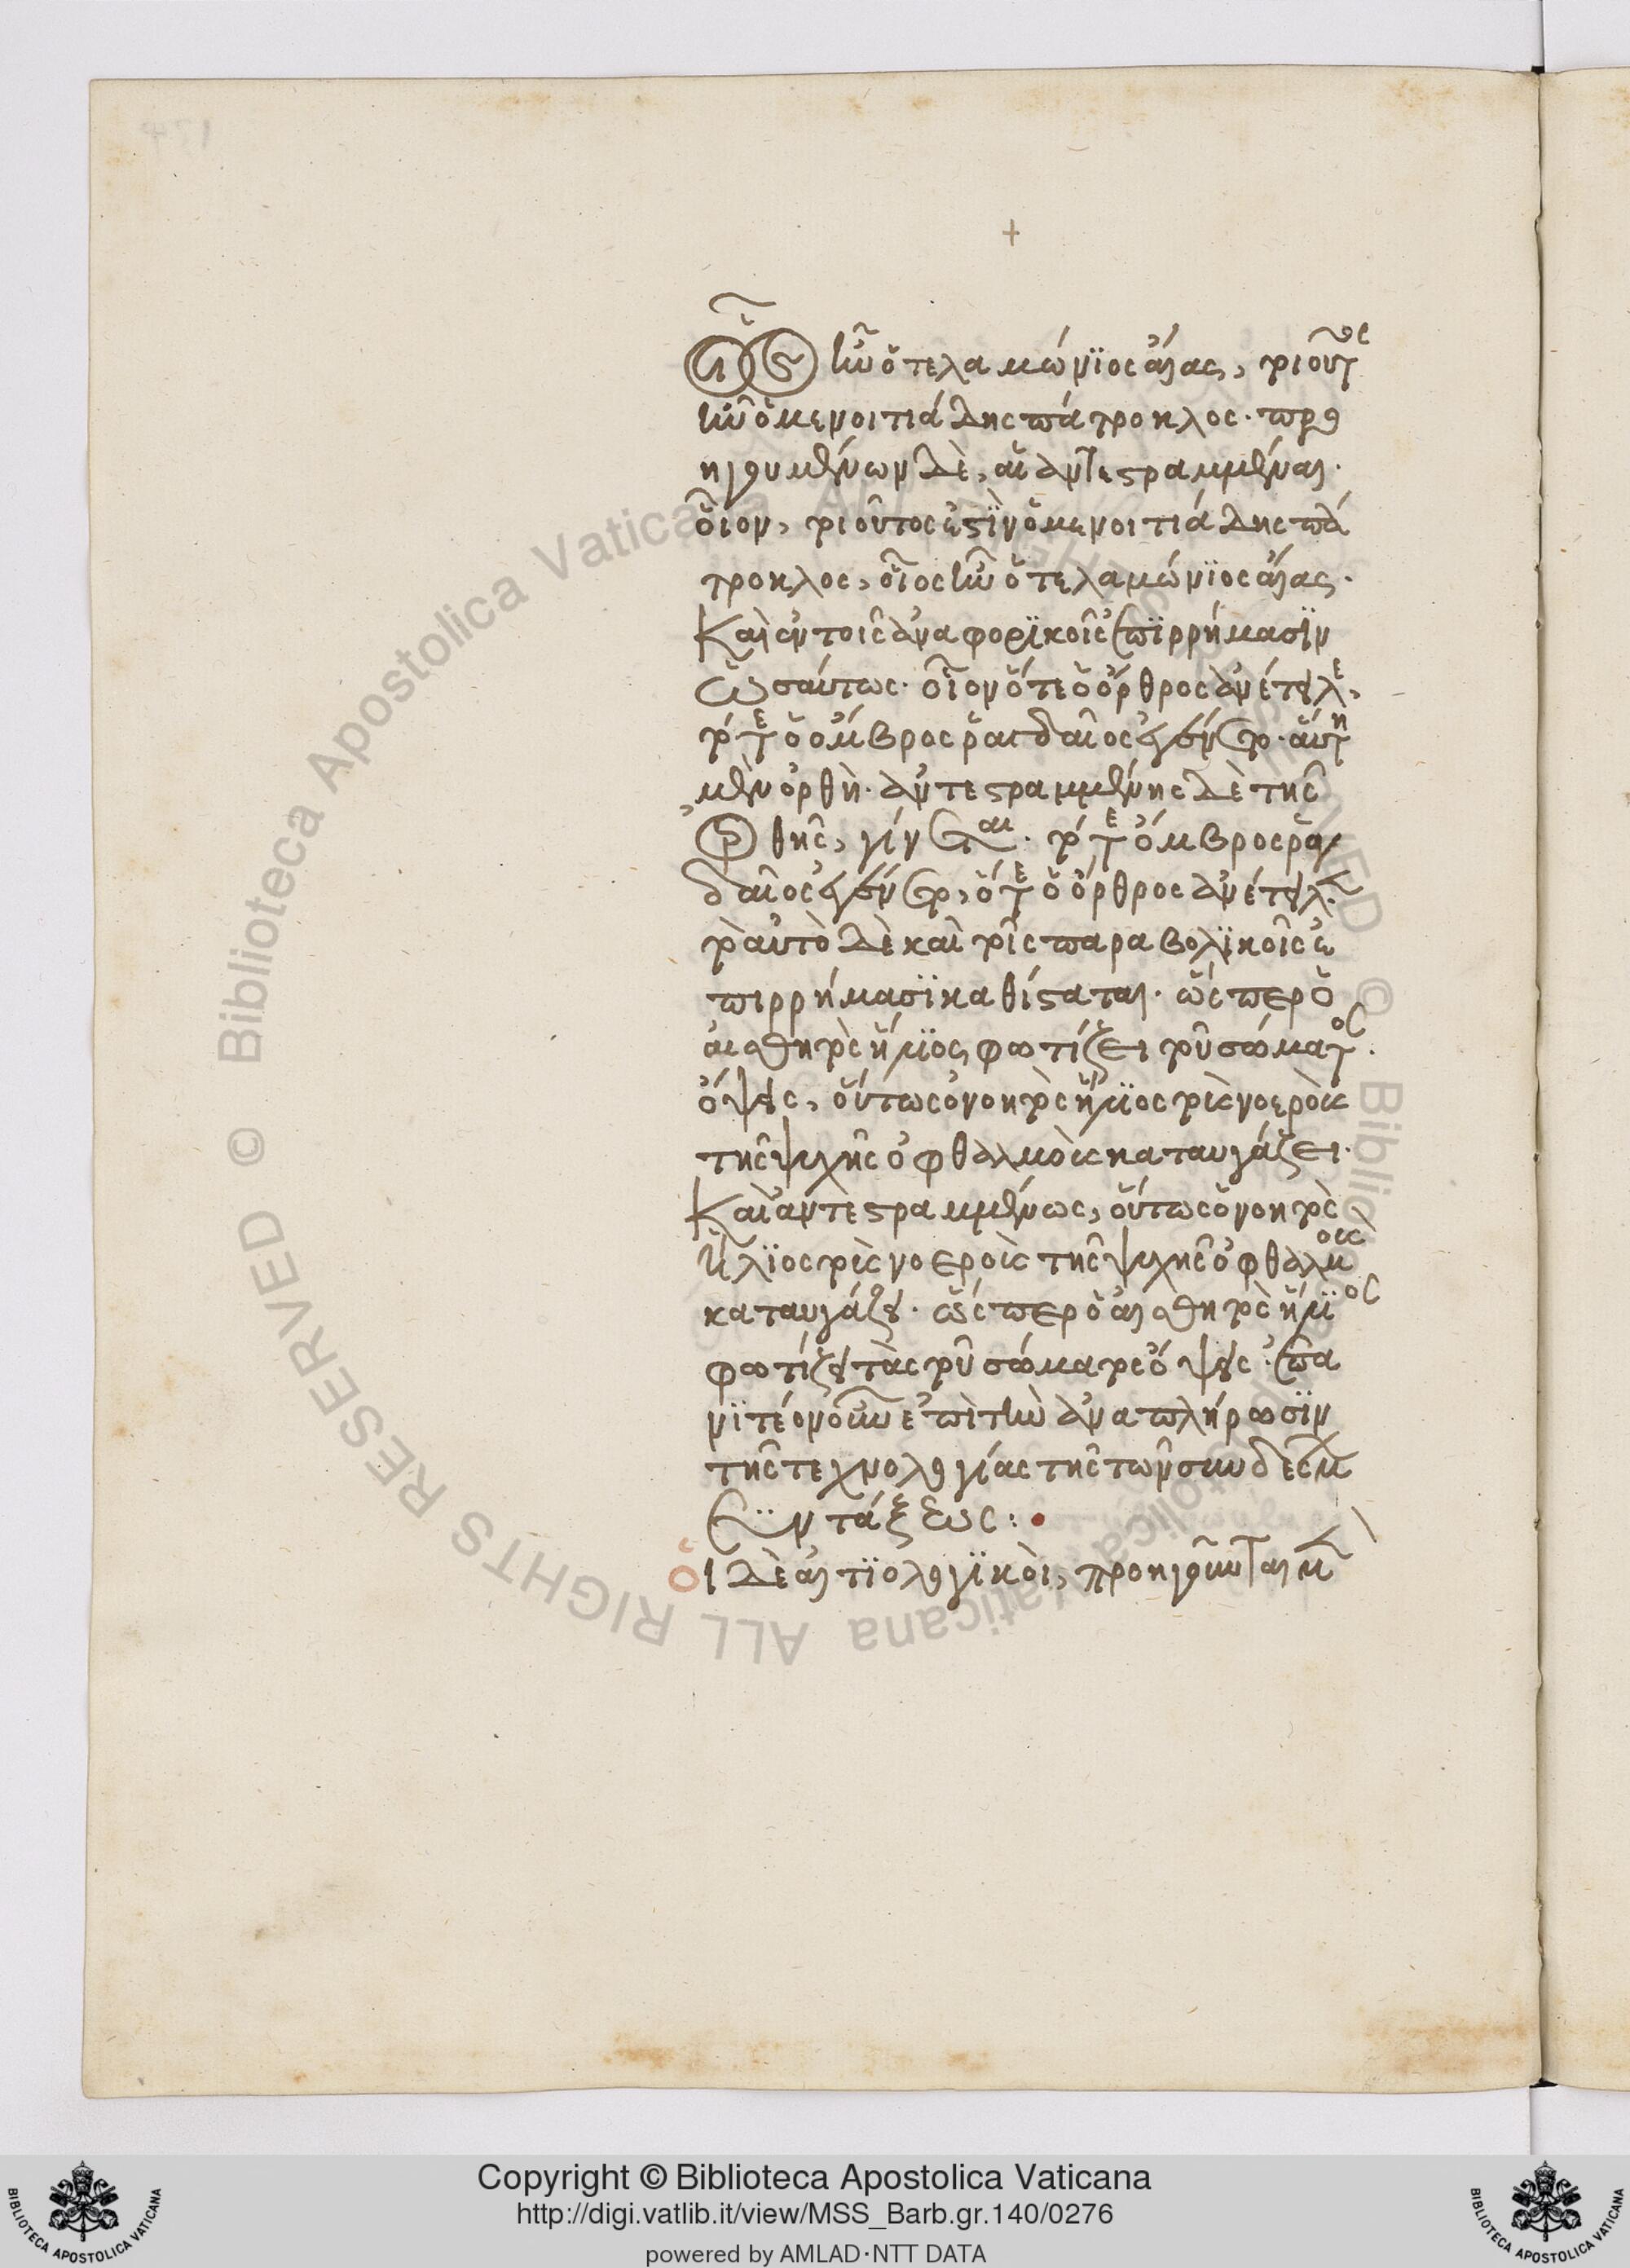 +
οἷος ἦν ὁ τελαμώνιος αἴας, τοιοῦτος
ἦν ὁ μενοιτιάδης πάτροκλος. προ
ηγουμένων δὲ, αἱ ἀντεστραμμέναι.
οἷον, τοιοῦτος ἐστὶν ὁ μενοιτιάδης πά
τροκλος, οἷος ἦν ὁ τελαμώνιος αἴας.
Καὶ ἐν τοῖς ἀναφορικοῖς ἐπιρρήμασιν
ὡσαύτως. οἷον ὅτε ὁ ὄρθρος ἀνέτειλε,
τότε ὁ ὄμβρος ῥαγδαῖος ἐγένετο. αὕτη
μὲν ὀρθὴ. ἀντεστραμμένης δὲ τῆς
ὀρθῆς, γίνεται. τότε ὄμβρος ῥα
γδαῖος ἐγένετο, ὅτε ὁ ὄρθρος ἀνέτειλεν.
τὸ αὐτὸ δὲ καὶ τοῖς παραβολικοῖς ἐ
πιρρήμασι καθίσταται. ὥσπερ ὁ
αἰσθητὸς ἥλιος φωτίζει τοῦ σώματος
ὄψεις, οὕτως ὁ νοητὸς ἥλιος τοὺς νοεροὺς
τῆς ψυχῆς ὀφθαλμοὺς καταυγάζει.
Καὶ ἀντεστραμμένως, οὕτως ὁ νοητὸς
ἥλιος τοὺς νοεροὺς τῆς ψυχῆς ὀφθαλμοὺς
καταυγάζει. ὥσπερ ὁ αἰσθητὸς ἥλιος
φωτίζει τὰς τοῦ σώματος ὄψεις. ἐπα
νιτέον οὖν ἐπὶ τὴν ἀναπλήρωσιν
τῆς τεχνολογίας τῆς τῶν συνδέσμων
συντάξεως:
Οἱ δὲ αἰτιολογικοὶ, προηγοῦνται μὲν
Copyright © Biblioteca Apostolica Vaticana
http://digi.vatlib.it/view/MSS_Barb.gr.140/0276
powered by AMLAD·NTT DATA
BIBLIOTECA APOSTOLICA VATICANA
BIBLIOTECA APOSTOLICA VATICANA